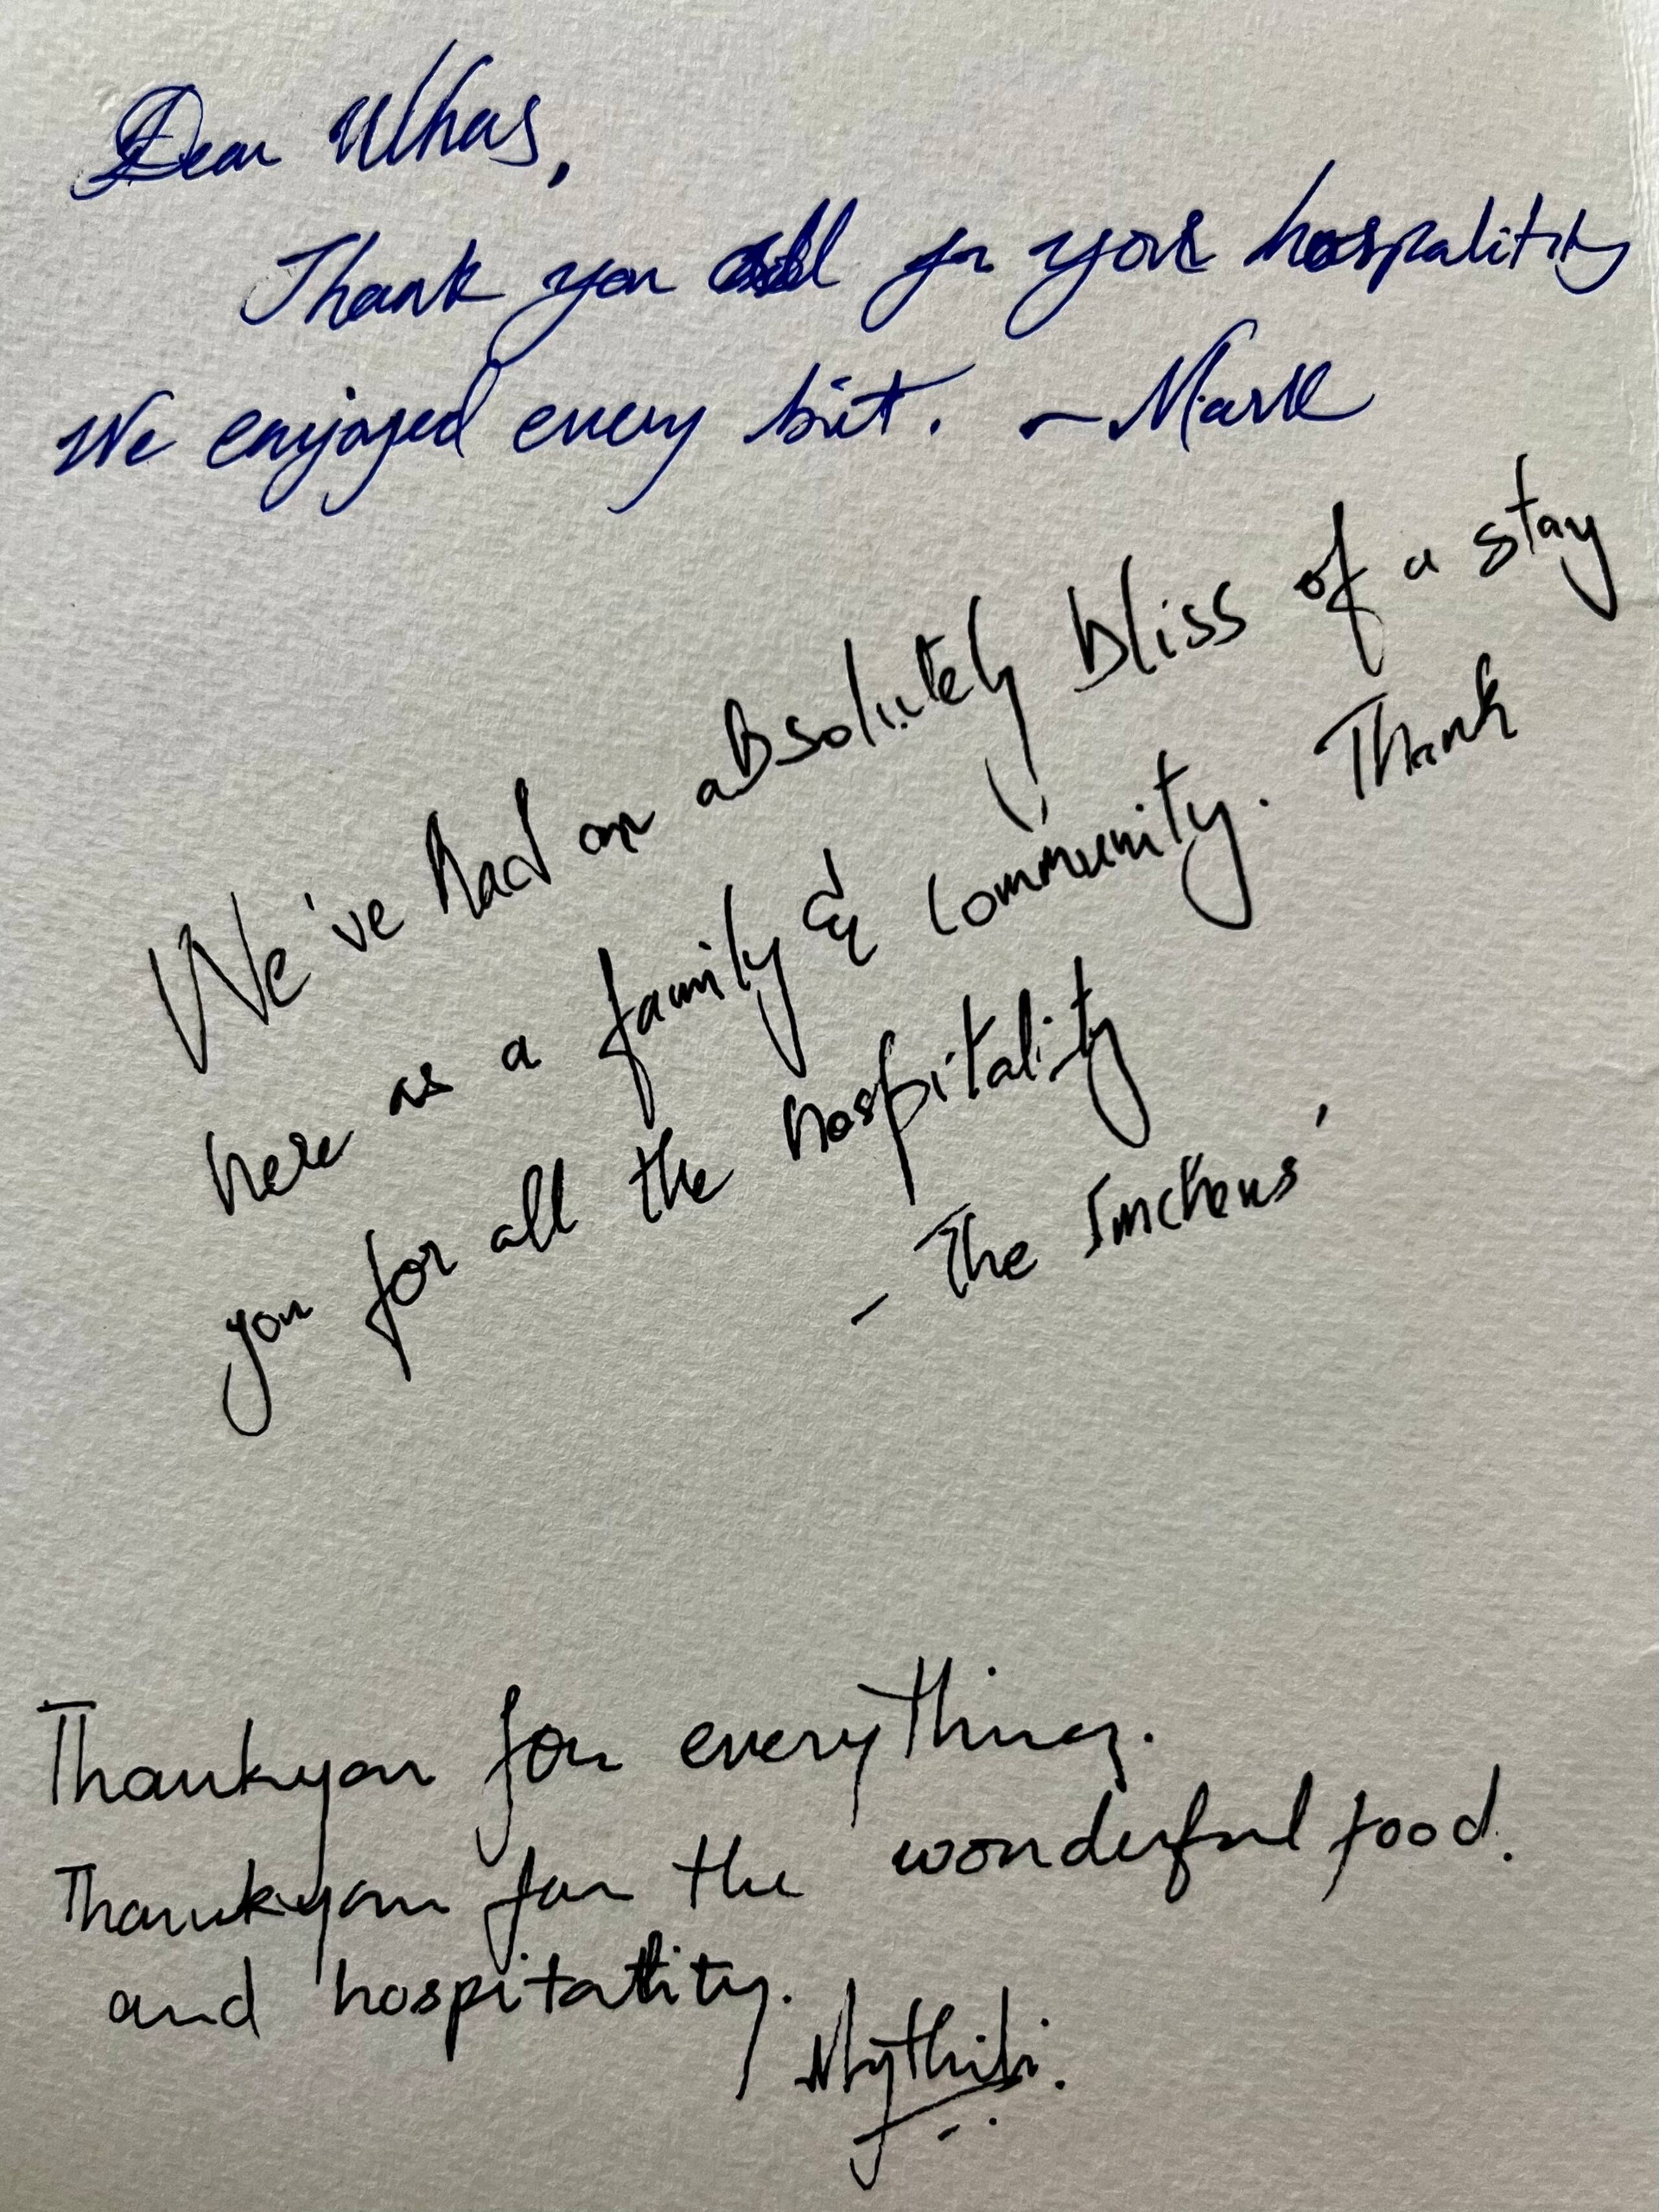 Dear Whas,
Thank you all for your hospality
We enjoyed every bit. ~ Mark
We've had an absolutely bliss of a stay
here as a family & community. Thank
you for all the hospitality
- The Imchens'
Thankyou for everything.
Thankyou for the wonderful food.
and hospitality.
Mythili.